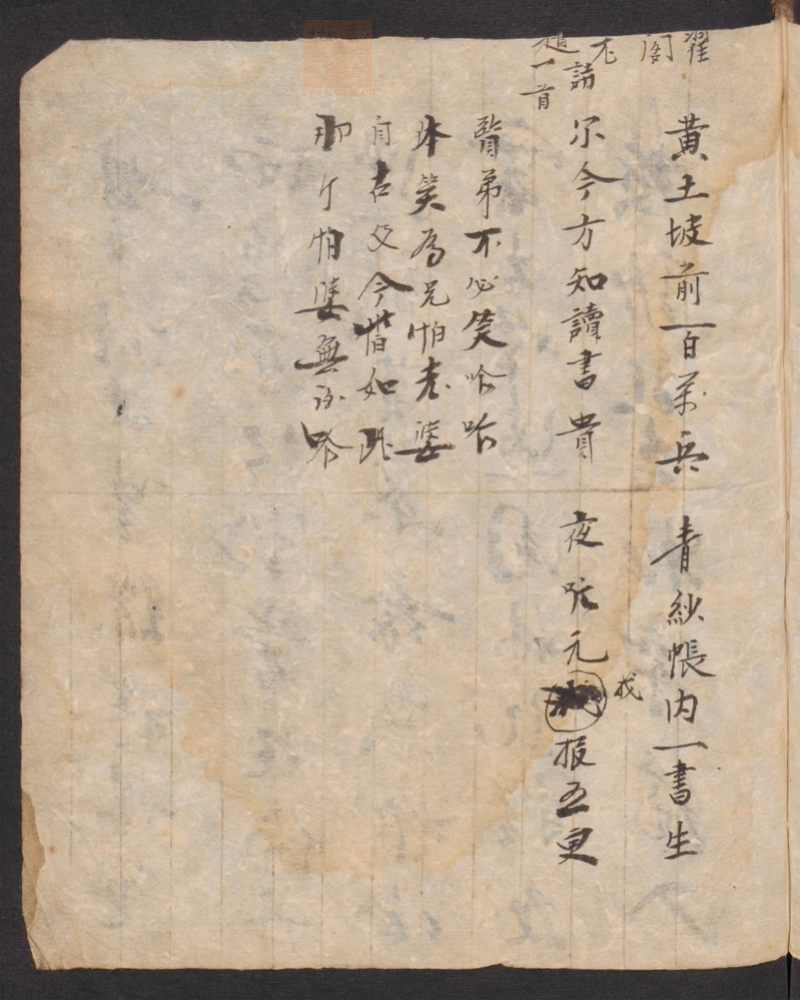 翟
阁
不
請
一首
黃土坡前一百萬兵 青紗帳内一書生
尔今方知讀書貴 夜元戎报五更
賢弟不必笑哈哈
休笑为兄怕老婆
自古及今皆如此
那个怕婆無